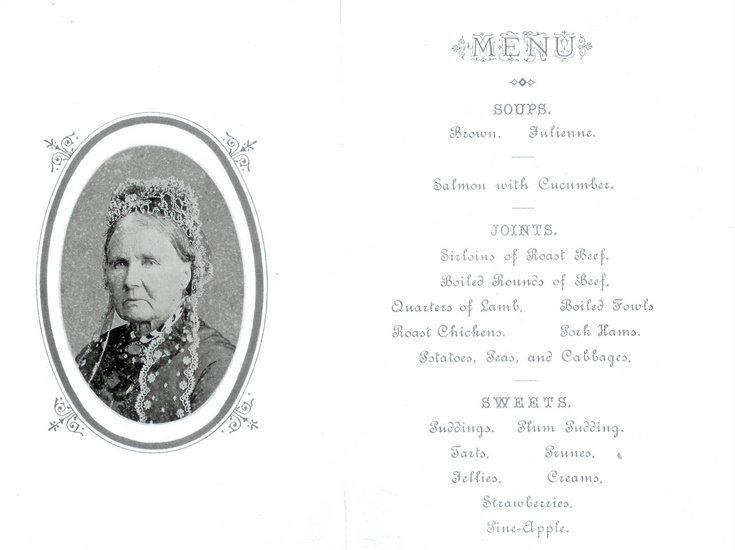 MENU
SOUPS.
Brown. Julienne.
Salmon with Cucumber.
JOINTS.
Sirloins of Roast Beef.
Boiled Rounds of Beef.
Quarters of Lamb. Boiled Fowls
Roast Chickens. Pork Hams.
Potatoes, Peas, and Cabbages.
SWEETS.
Puddings. Plum Pudding.
Tarts. Prunes.
Jellies. Creams.
Strawberries.
Pine-Apple.